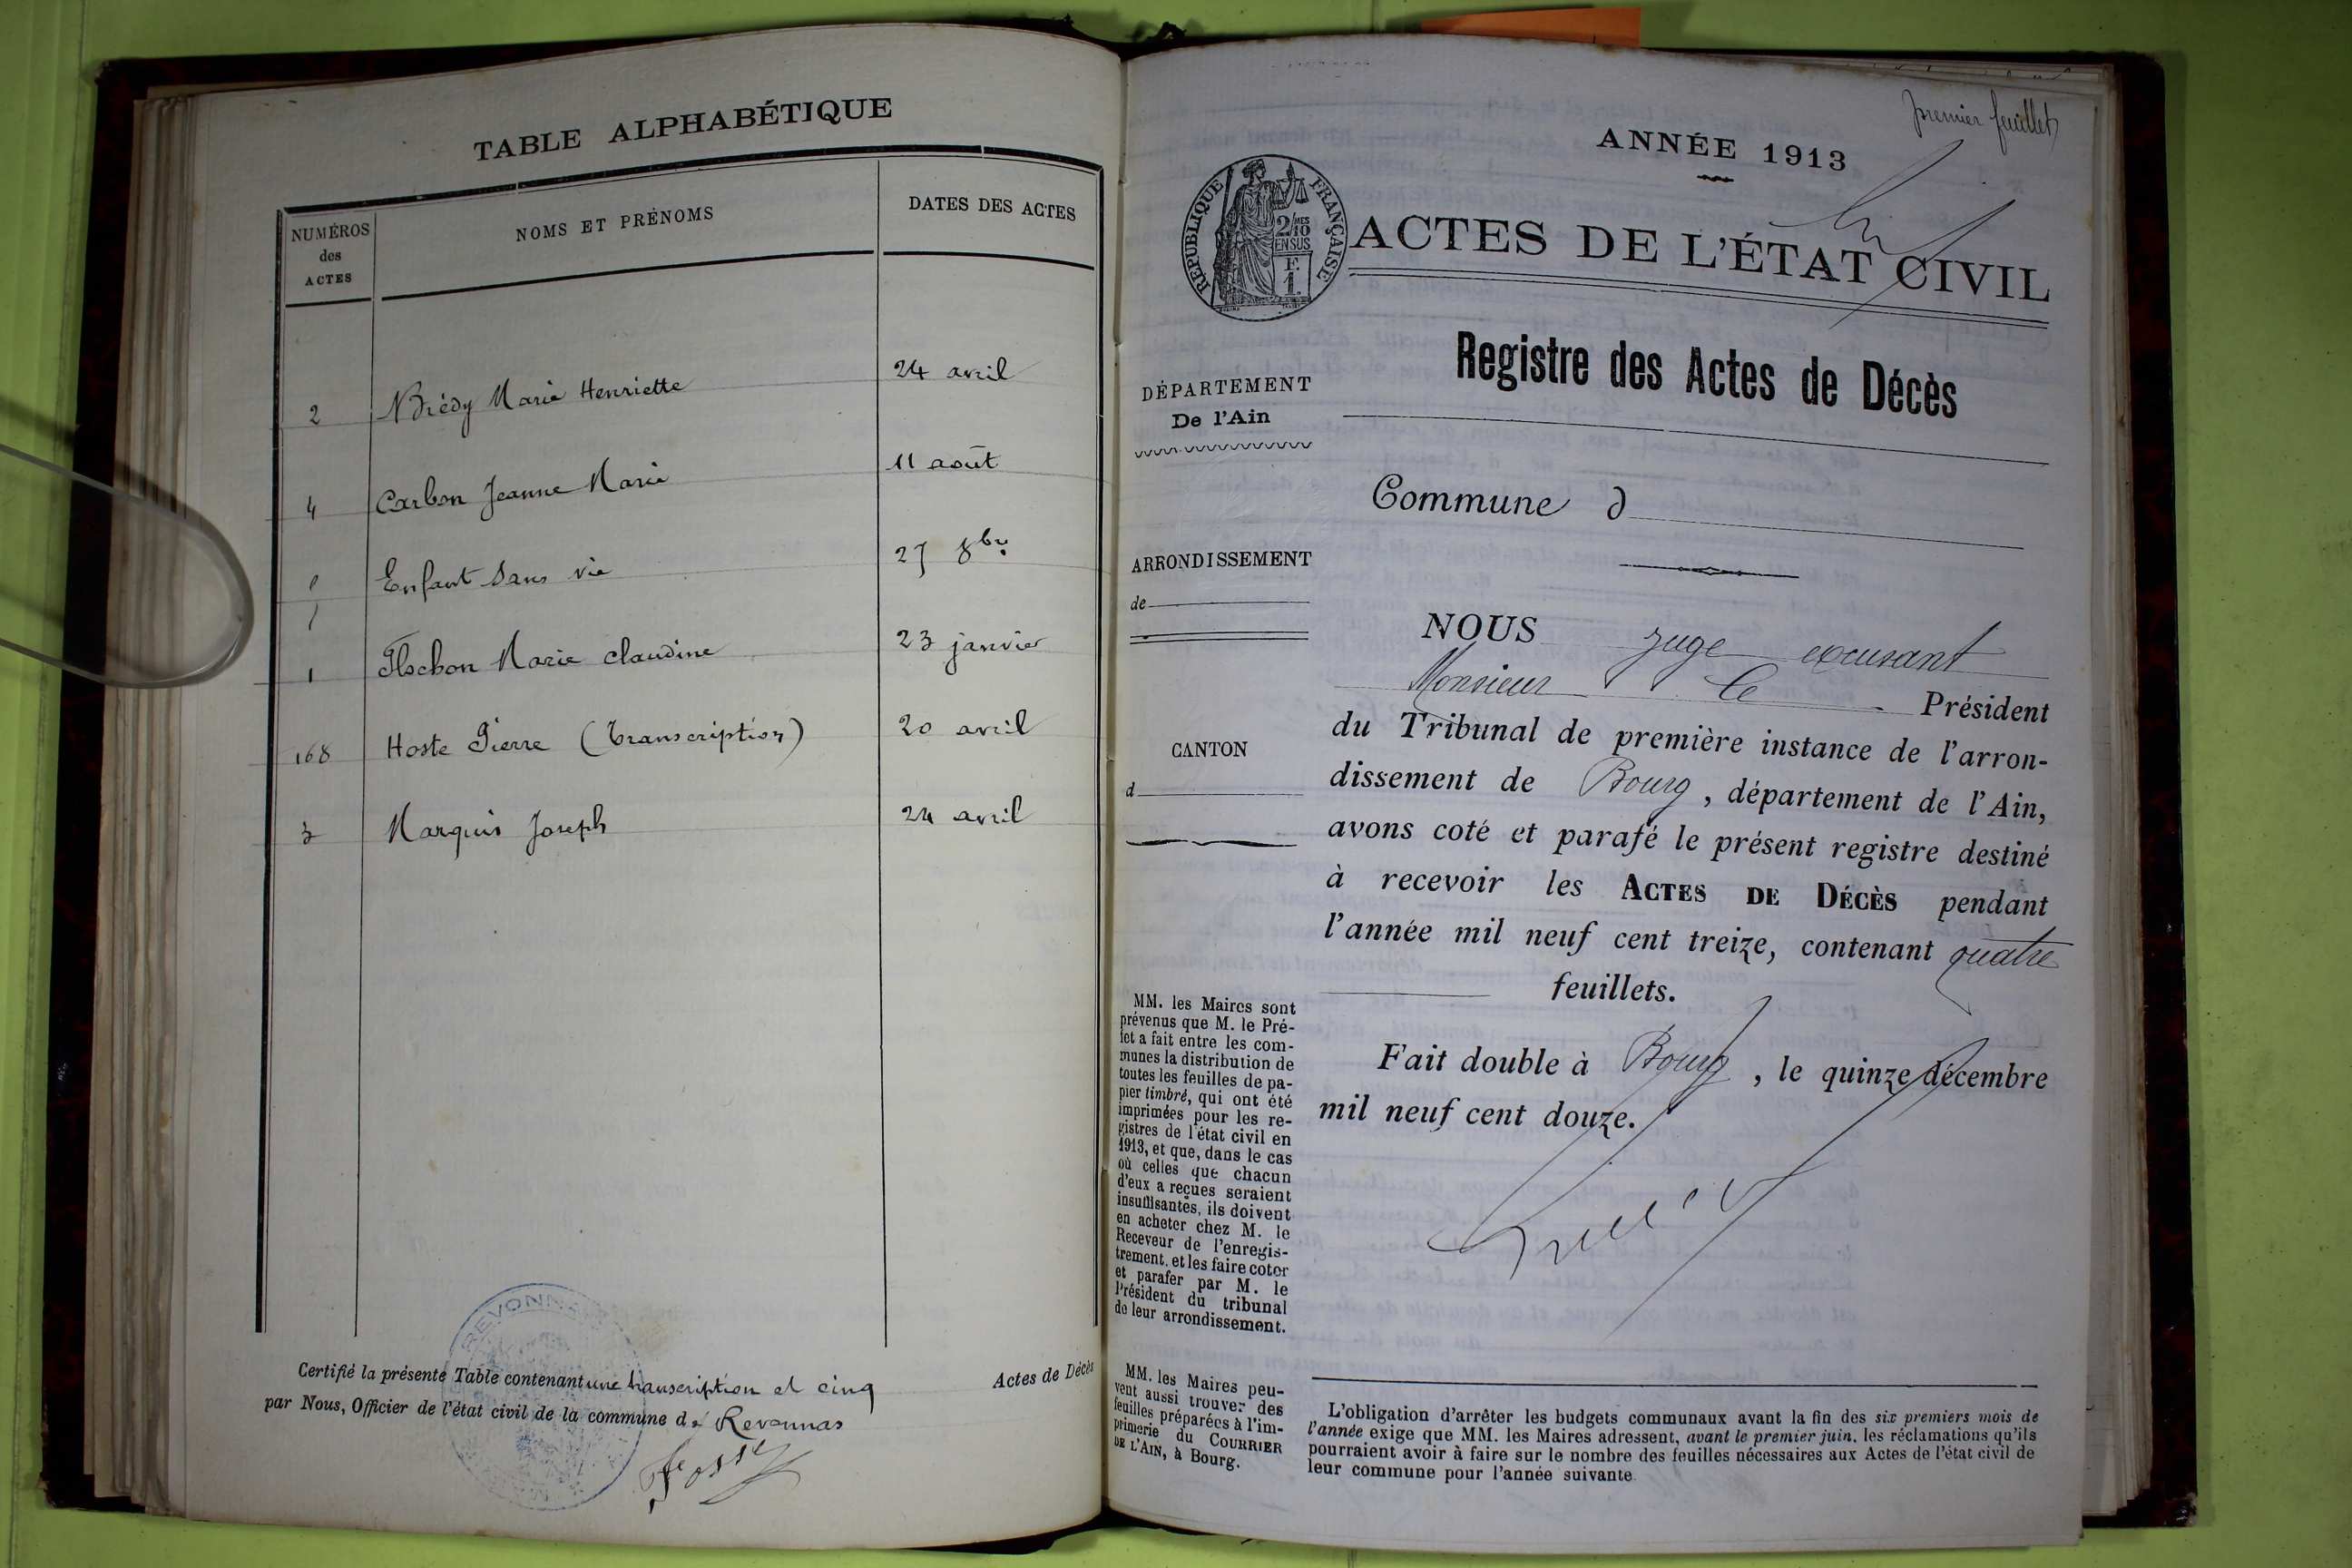 TABLE ALPHABÉTIQUE
NUMÉROS des ACTES
NOMS ET PRÉNOMS
DATES DES ACTES
2 Brédy Marie Henriette 24 avril
4 Carbon Jeanne Marie 11 août
5 Enfant sans vie 27 8bre
1 Flochon Marie Claudine 23 janvier
168 Hoste Pierre (transcription) 20 avril
3 Marquis Joseph 24 avril
REVONNAS
Certifié la présente Table contenant une transcription et cinq Actes de Décès
par Nous, Officier de l'état civil de la commune de Revonnas
premier feuillet
ANNÉE 1913
RÉPUBLIQUE FRANÇAISE
2/10MES
EN SUS
F.
1.
ACTES DE L'ÉTAT CIVIL
Registre des Actes de Décès
DÉPARTEMENT
De l'Ain
Commune d
ARRONDISSEMENT
de
CANTON
d
NOUS juge excusant
Monsieur le Président
du Tribunal de première instance de l'arron-
dissement de Bourg, département de l'Ain,
avons coté et parafé le présent registre destiné
à recevoir les ACTES DE DÉCÈS pendant
l'année mil neuf cent treize, contenant quatre
feuillets.
Fait double à Bourg, le quinze décembre
mil neuf cent douze.
MM. les Maires sont
prévenus que M. le Pré-
fet a fait entre les com-
munes la distribution de
toutes les feuilles de pa-
pier timbré, qui ont été
imprimées pour les re-
gistres de l'état civil en
1913, et que, dans le cas
où celles que chacun
d'eux a reçues seraient
insuffisantes, ils doivent
en acheter chez M. le
Receveur de l'enregis-
trement, et les faire coter
et parafer par M. le
Président du tribunal
de leur arrondissement.
MM. les Maires peu-
vent aussi trouver des
feuilles préparées à l'im-
primerie du COURRIER
DE L'AIN, à Bourg.
L'obligation d'arrêter les budgets communaux avant la fin des six premiers mois de
l'année exige que MM. les Maires adressent, avant le premier juin, les réclamations qu'ils
pourraient avoir à faire sur le nombre des feuilles nécessaires aux Actes de l'état civil de
leur commune pour l'année suivante.